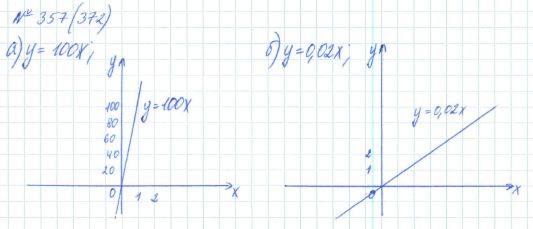 № 357(372)
а) y = 100x;
б) y = 0,02x;
y
y
100
80
60
40
20
0
1 2
x
y=100x
y=0,02x
2
1
0
x